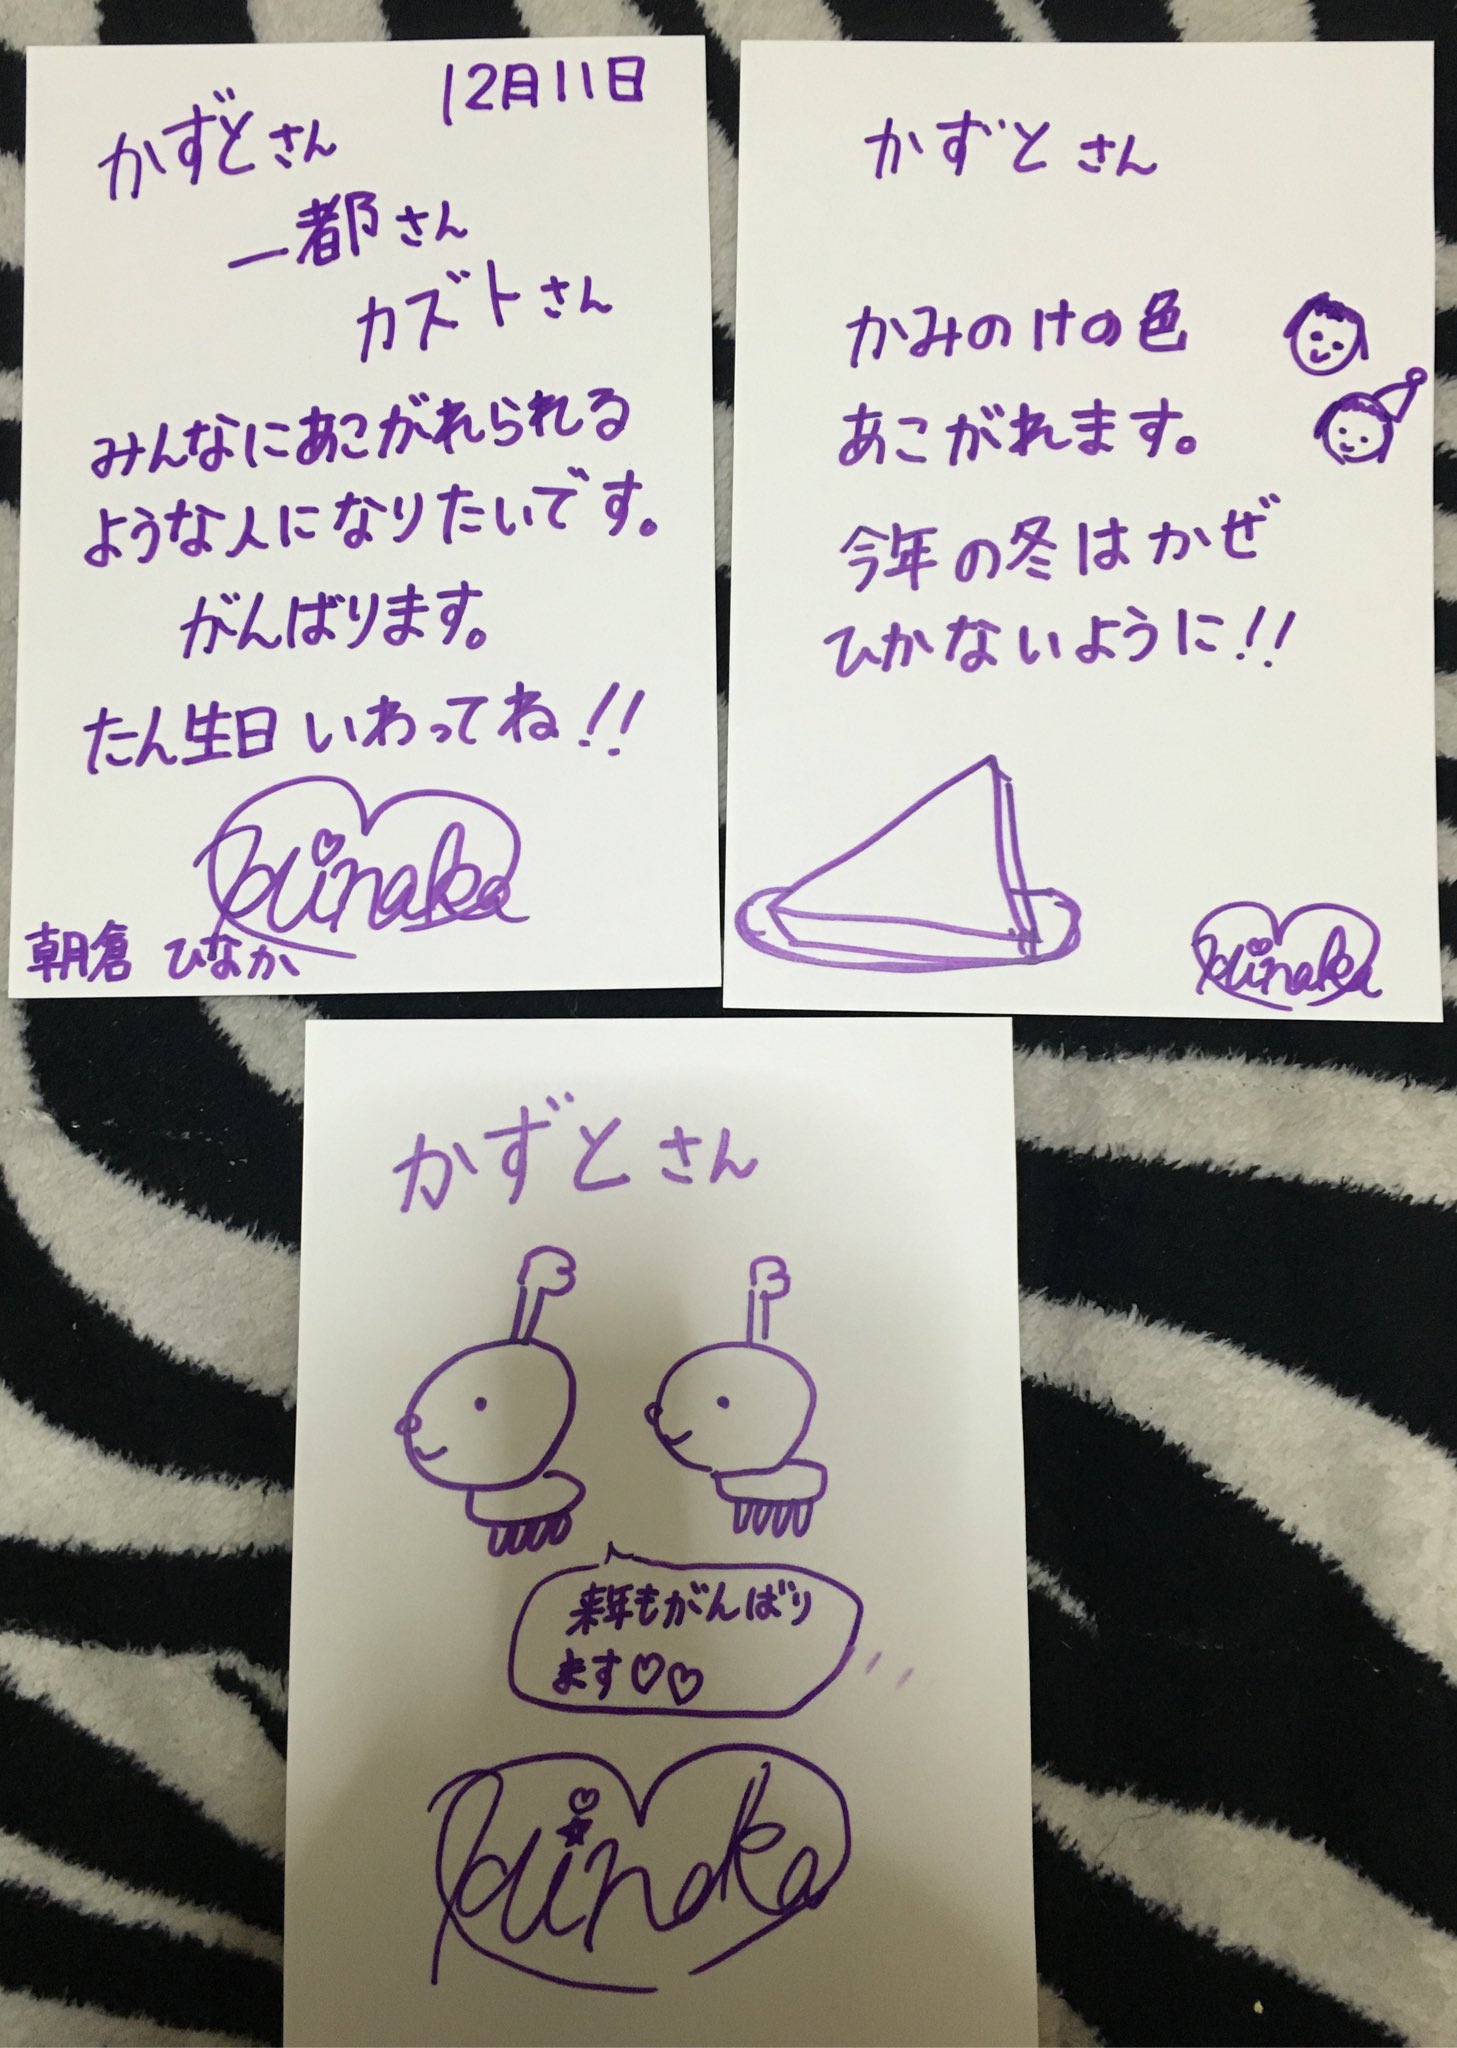 12月11日
かずとさん
一都さん
カズトさん
みんなにあこがれられる
ような人になりたいです。
がんばります。
たん生日いわってね!!
Hinaka
朝倉 ひなか
かずとさん
かみのけの色
あこがれます。
今年の冬はかぜ
ひかないように!!
Hinaka
かずとさん
来年もがんばり
ます♡♡
Hinaka